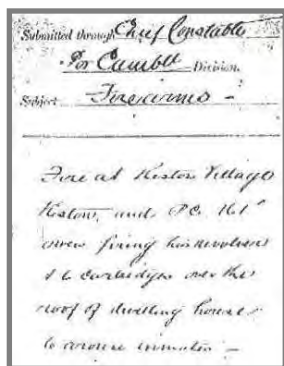 Submitted through Chief Constable
For Cambll Division.
Subject Firearms -
Fire at Keston Village
Keston, and P.C.
firing his revolver
& 6 cartridges over the
roof of dwelling houses
to arouse inmates -